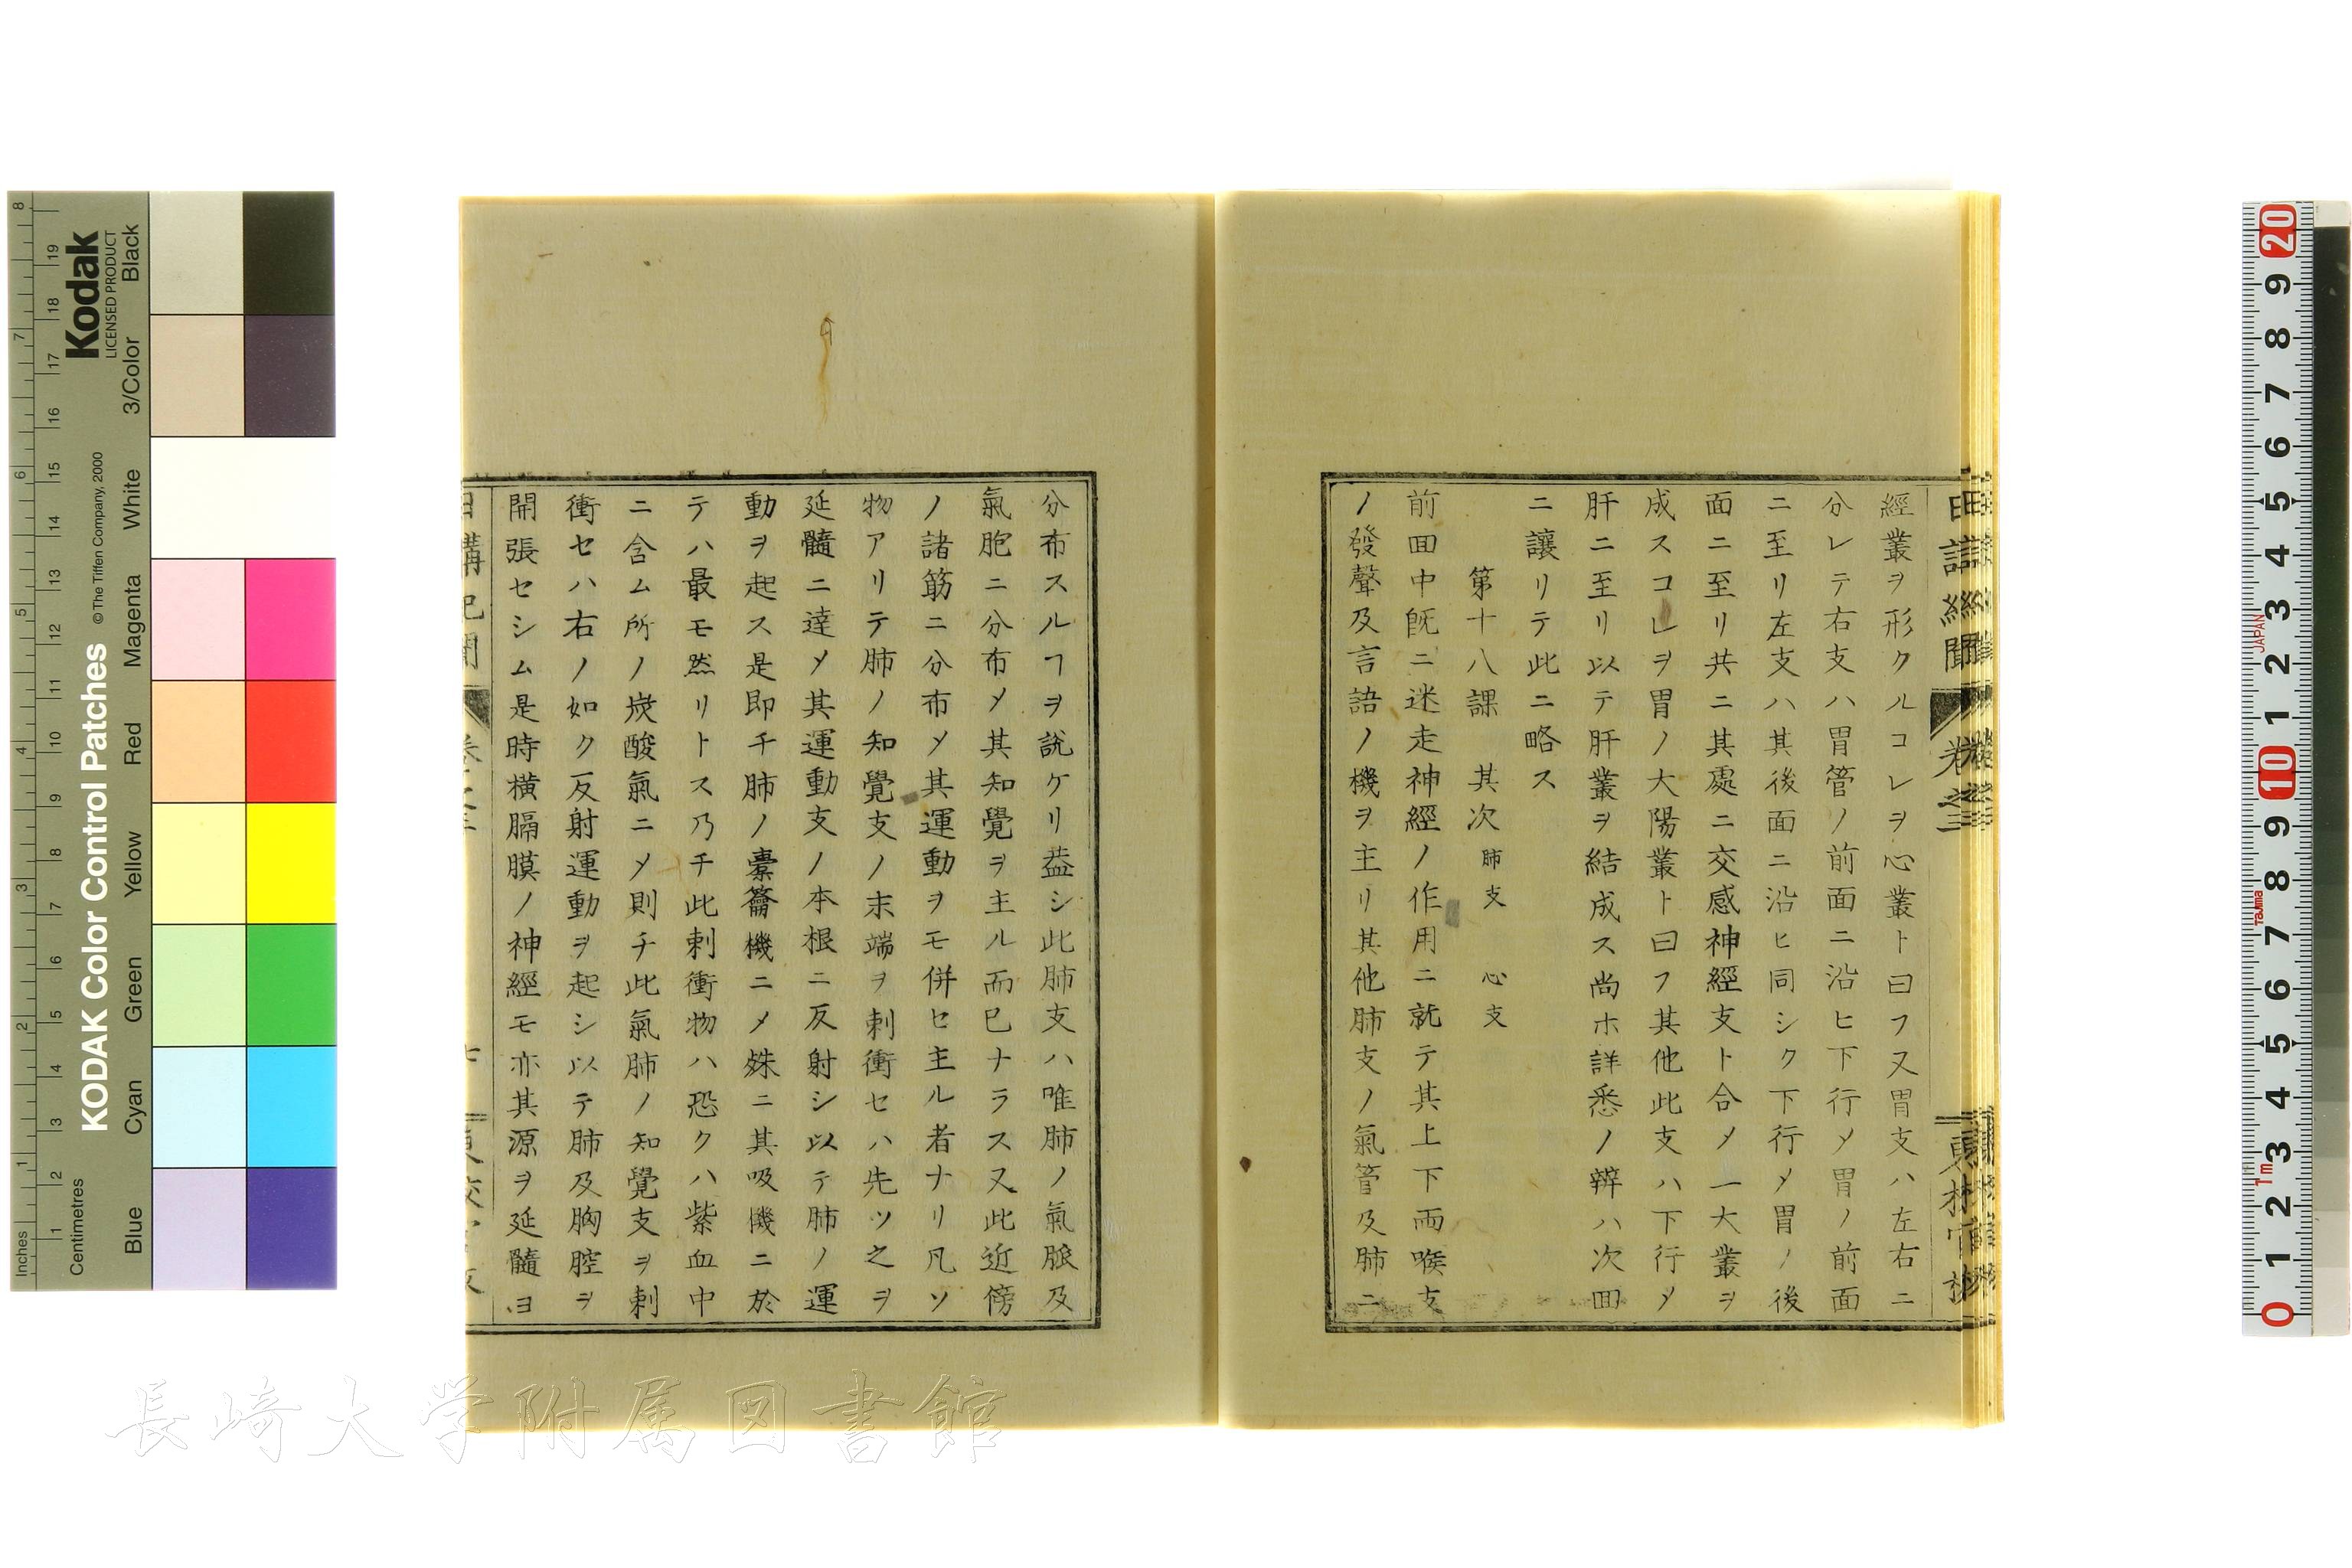 經叢ヲ形クルコレヲ心叢ト曰フ又胃支ハ左右ニ
分レテ右支ハ胃管ノ前面ニ沿ヒ下行〆胃ノ前面
ニ至リ左支ハ其後面ニ沿ヒ同シク下行〆胃ノ後
面ニ至リ共ニ其處ニ交感神經支ト合〆一大叢ヲ
成スコレヲ胃ノ大陽叢ト曰フ其他此支ハ下行〆
肝ニ至リ以テ肝叢ヲ結成ス尚ホ詳悉ノ辨ハ次回
ニ讓リテ此ニ略ス
第十八課 其次 肺支 心支
前回中旣ニ迷走神經ノ作用ニ就テ其上下両喉支
ノ發聲及言語ノ機ヲ主リ其他肺支ノ氣管及肺ニ
分布スルヿヲ說ケリ葢シ此肺支ハ唯肺ノ氣脈及
氣胞ニ分布〆其知覺ヲ主ル而巳ナラス又此近傍
ノ諸筋ニ分布〆其運動ヲモ併セ主ル者ナリ凡ソ
物アリテ肺ノ知覺支ノ末端ヲ刺衝セハ先ツ之ヲ
延髓ニ達〆其運動支ノ本根ニ反射シ以テ肺ノ運
動ヲ起ス是即チ肺ノ橐籥機ニ〆殊ニ其吸機ニ於
テハ最モ然リトス乃チ此刺衝物ハ恐クハ紫血中
ニ含ム所ノ炭酸氣ニ〆則チ此氣肺ノ知覺支ヲ刺
衝セハ右ノ如ク反射運動ヲ起シ以テ肺及胸腔ヲ
開張セシム是時横膈膜ノ神經モ亦其源ヲ延髓ヨ
日講記聞
卷之三
七
長崎大学附属図書館
Kodak
LICENSED PRODUCT
KODAK Color Control Patches
© The Tiffen Company, 2000
Inches 1 2 3 4 5 6 7 8
Centimetres 1 2 3 4 5 6 7 8 9 10 11 12 13 14 15 16 17 18 19
Blue Cyan Green Yellow Red Magenta White 3/Color Black
0 1 2 3 4 5 6 7 8 9 10 1 2 3 4 5 6 7 8 9 20
1m
Tajima
JAPAN